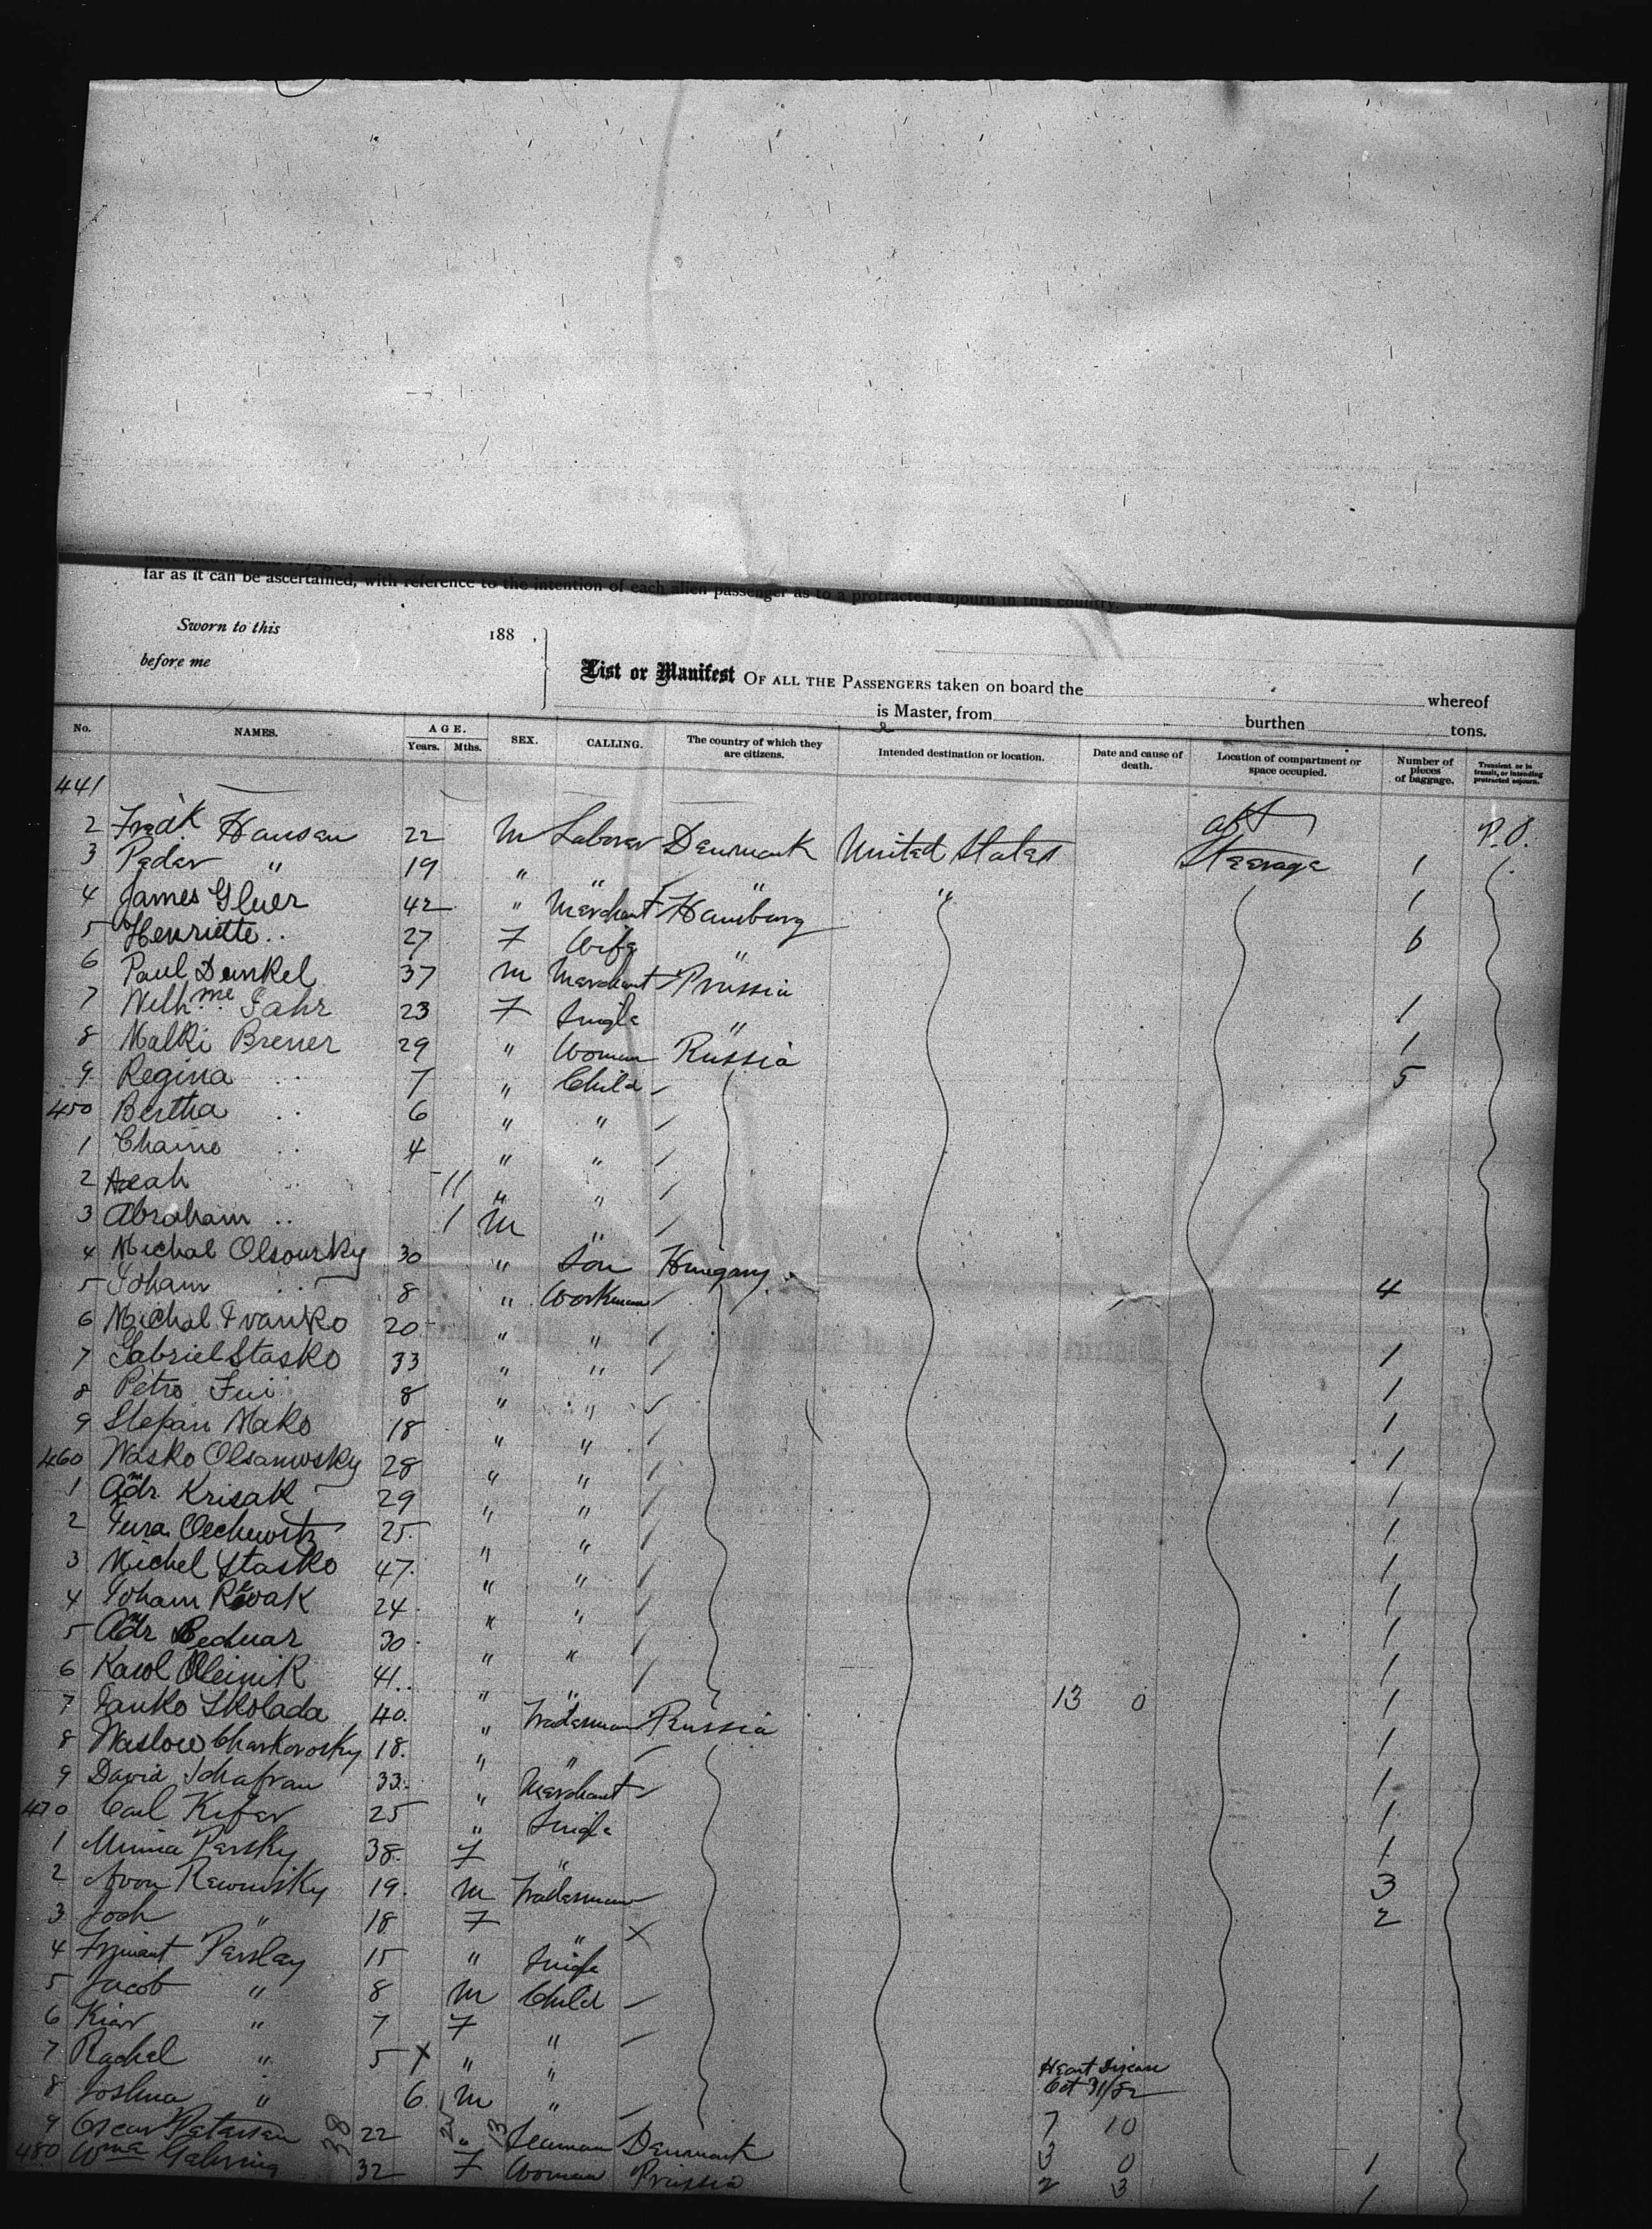 far as it can be ascertained, with reference to the intention of each alien passenger as to a protracted sojourn in this country.
Sworn to this 188 ,
before me
List or Manifest OF ALL THE PASSENGERS taken on board the whereof
is Master, from burthen tons.
No. NAMES. AGE. Years. Mths. SEX. CALLING. The country of which they are citizens. Intended destination or location. Date and cause of death. Location of compartment or space occupied. Number of pieces of baggage. Transient or in transit, or intending protracted sojourn.
441
2 Fredk Hansen 22 M Laborer Denmark United States aft Steerage 1 P.S.
3 Peder " 19 " " " " 1
4 James Gluer 42 " Merchant Hamburg 6
5 Henriette .. 27 F Wife "
6 Paul Dunkel 37 M Merchant Prussia 1
7 Wilhme Fahr 23 F Single " 1
8 Malki Brener 29 " Woman Russia 5
9 Regina .. 7 " Child
450 Bertha .. 6 " "
1 .. 4 " "
2 Leah .. 11 " "
3 Abraham .. 1 M "
4 Michal Olsowsky 30 " Son Hungary 4
5 Johann .. 8 " Workman
6 Michal Ivanko 20 " " 1
7 Gabriel Stasko 33 " " 1
8 Petro 8 " " 1
9 Stefan Mako 18 " " 1
460 Wasko Olsanwsky 28 " " 1
1 Adr Krisak 29 " " 1
2 25 " " 1
3 Michel Stasko 47 " " 1
4 Johann Rewak 24 " " 1
5 Adr Bednar 30 " " 1
6 Karol Oleinik 41 " " 13 0 1
7 Janko Skolada 40 " Tradesman Russia 1
8 18 " " 1
9 David Schafran 33 " Merchant 1
470 Carl Kifer 25 " Single 1
1 Minna Persky 38 F " 3
2 19 M Tradesman 2
3 " 18 F " X
4 15 " Single
5 Jacob " 8 M Child
6 " 7 F "
7 Rachel " 5 X " " Heart Disease Oct 31/82
8 Joshua " 6 M " 7 10
9 Oscar Petersen 38 22 " 13 Seaman Denmark 3 0 1
480 Wme Gehring 32 F Woman Prussia 2 3 1